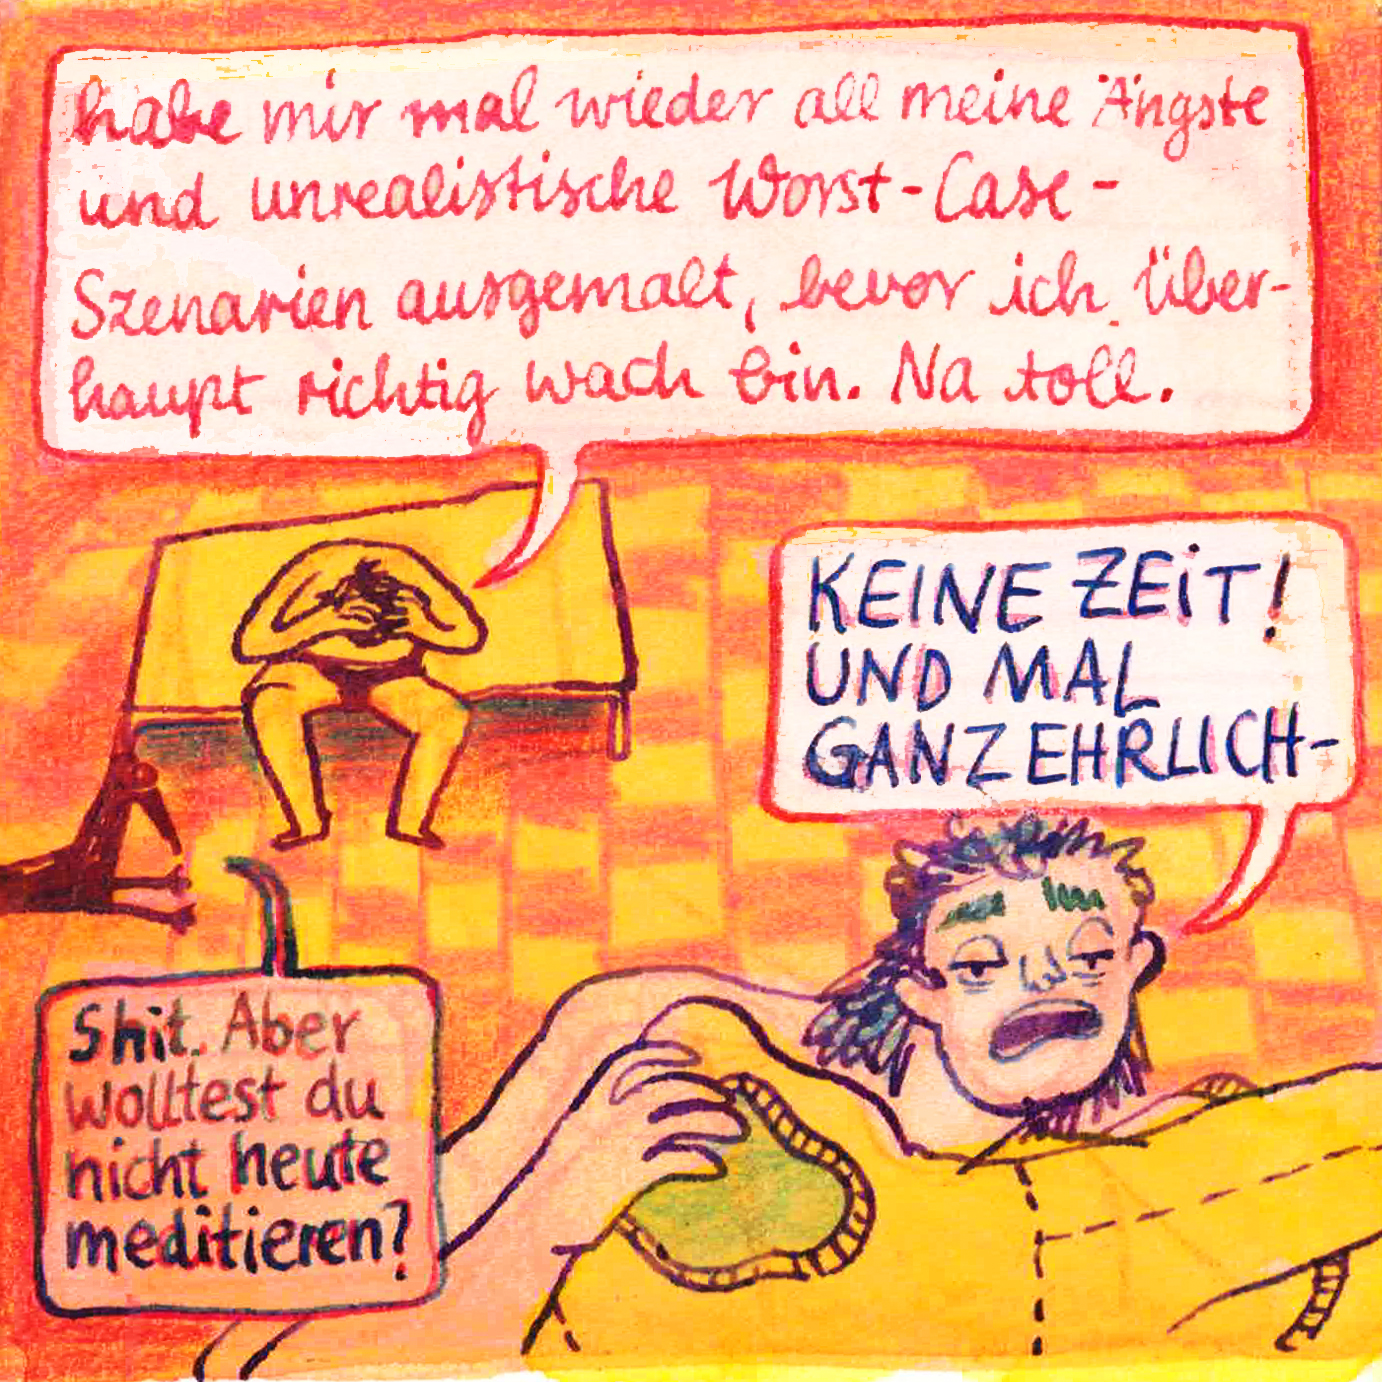 habe mir mal wieder all meine Ängste
und unrealistische Worst-Case-
Szenarien ausgemalt, bevor ich über-
haupt richtig wach bin. Na toll.
Shit. Aber
wolltest du
nicht heute
meditieren?
KEINE ZEiT!
UND MAL
GANZ EHRLICH-